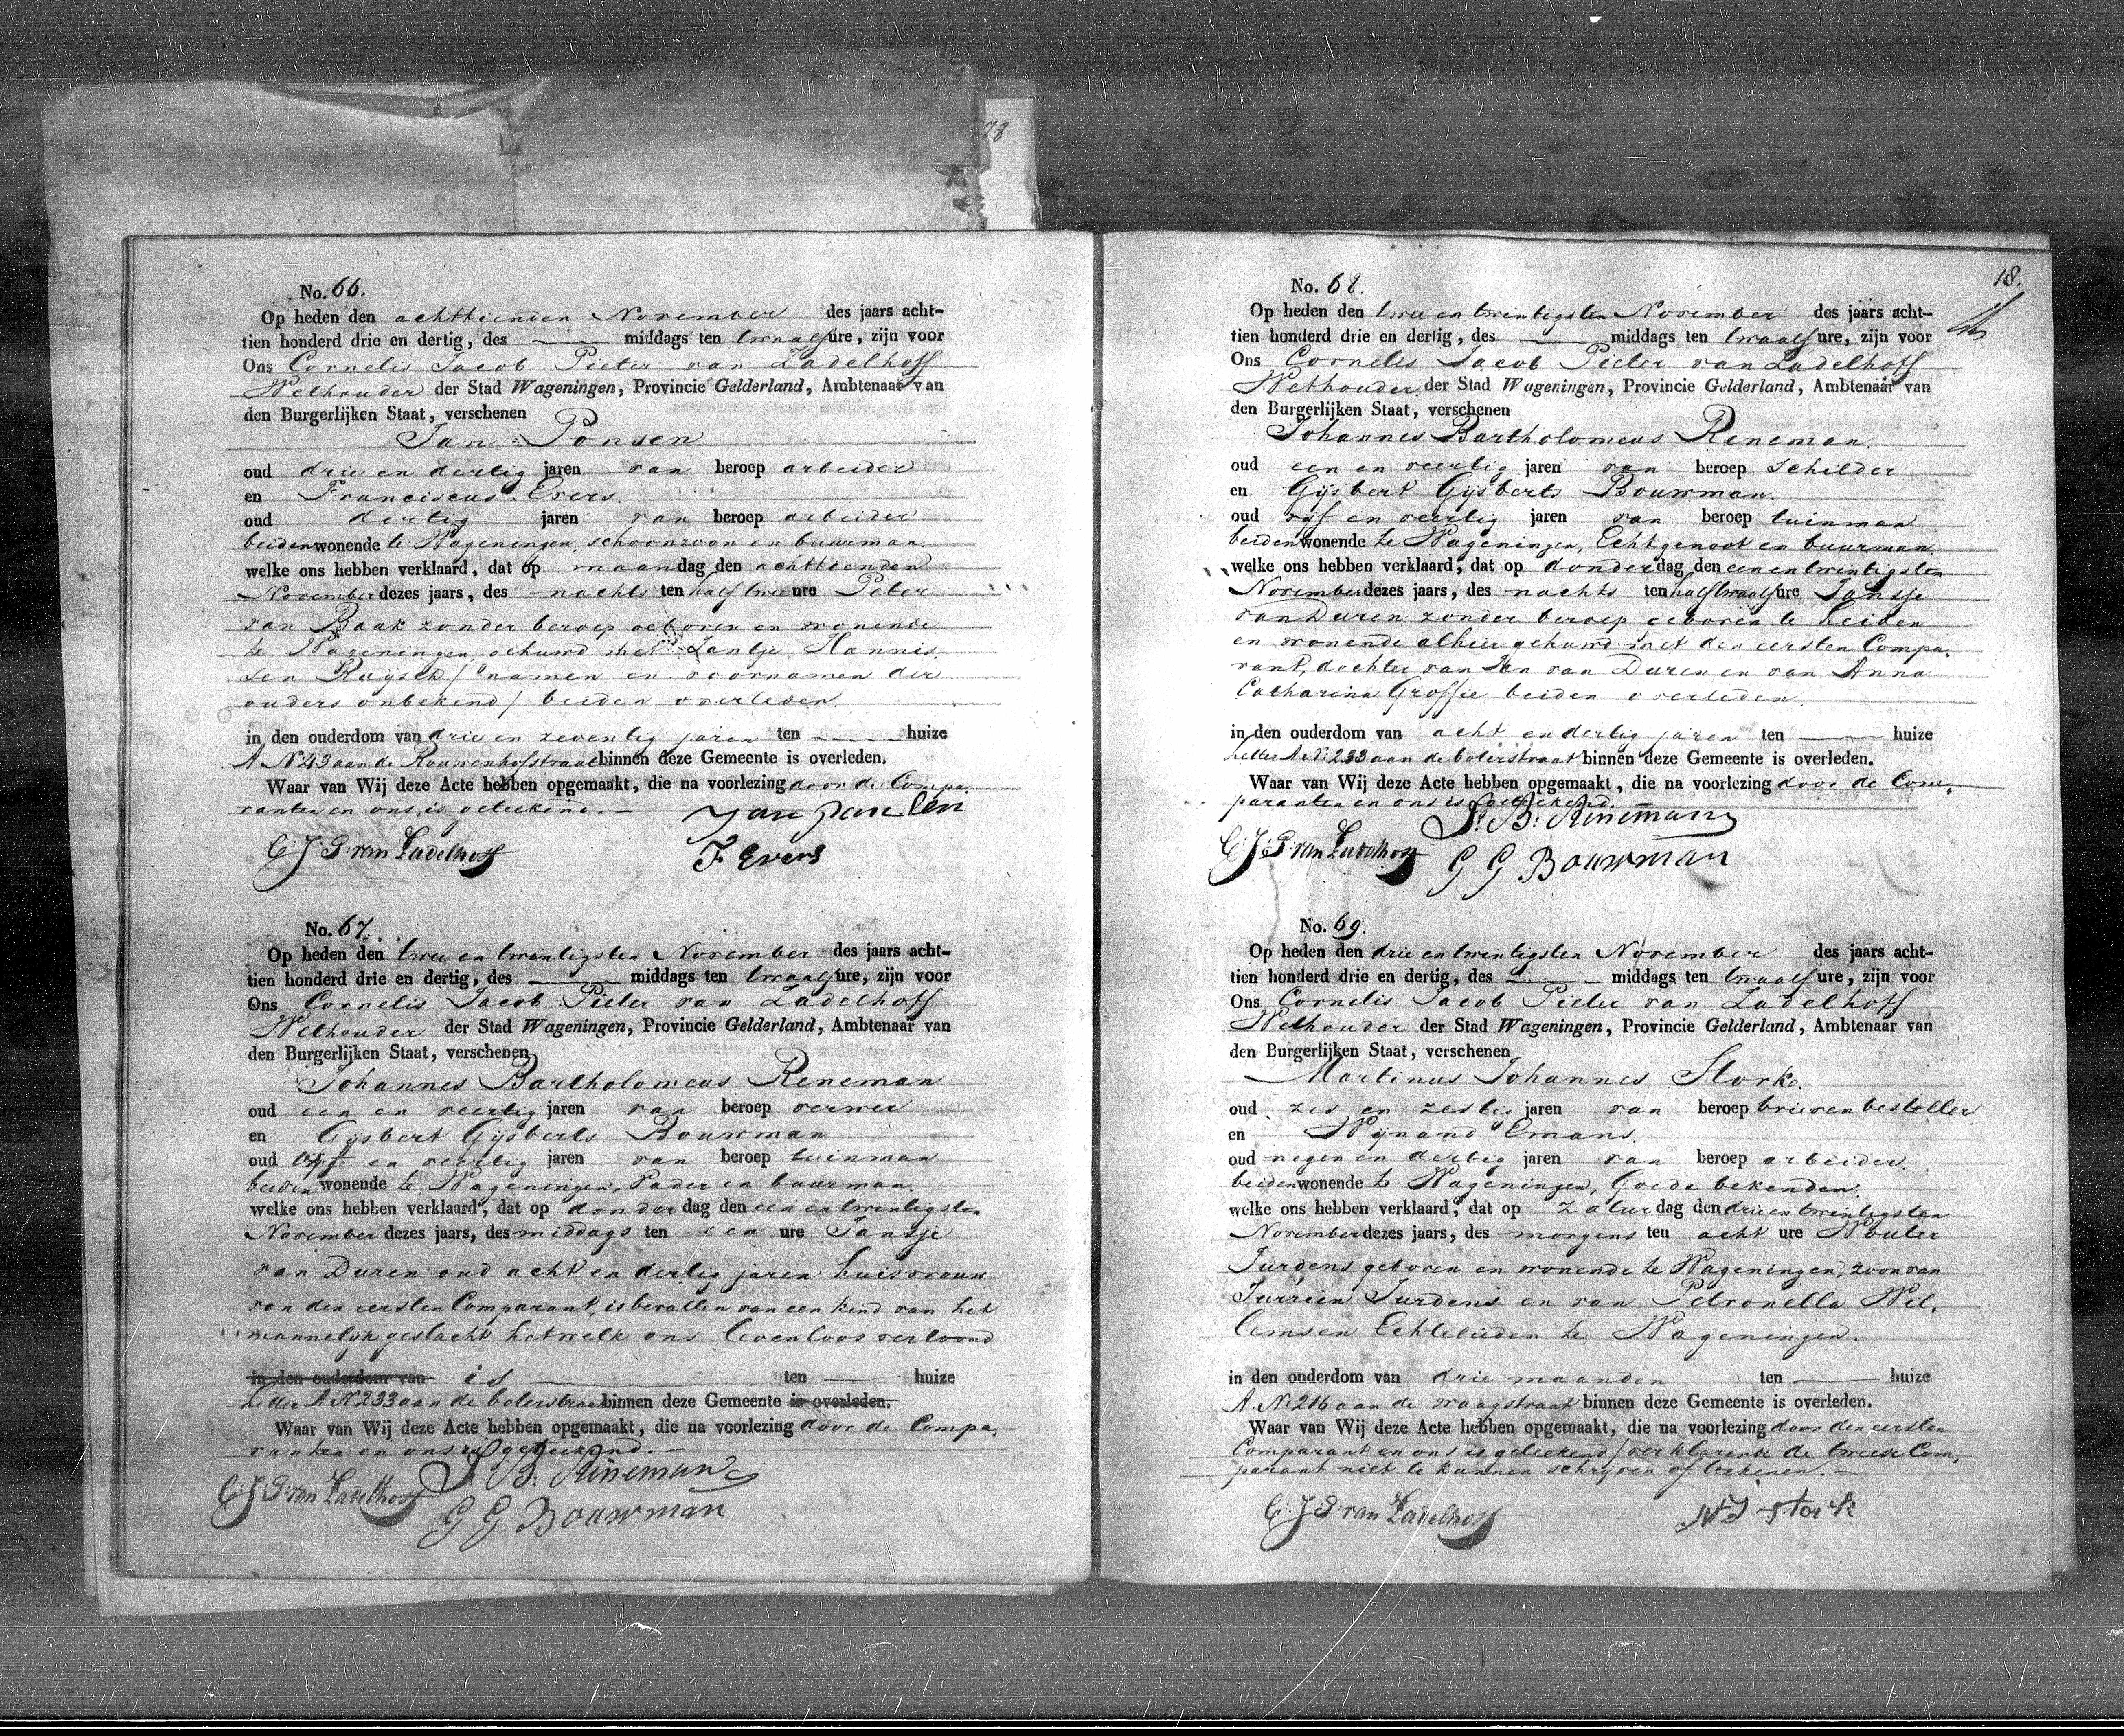 78
No. 66.
Op heden den achttienden November des jaars acht-
tien honderd drie en dertig, des middags ten twaalf ure, zijn voor
Ons Cornelis Jacob Pieter van Zadelhoff
Wethouder der Stad Wageningen, Provincie Gelderland, Ambtenaar van
den Burgerlijken Staat, verschenen
Jan Ponsen
oud drie en dertig jaren van beroep arbeider
en Franciscus Evers.
oud dertig jaren van beroep arbeider
beiden wonende te Wageningen, schoonzoon en buurman
welke ons hebben verklaard, dat op maandag den achttienden
November dezes jaars, des nachts ten half twee ure Peter
van Baak zonder beroep geboren en wonende
te Wageningen gehuwd met Jantje Hannis
sen Ruijsch / namen en voornamen der
ouders onbekend / beiden overleden.
in den ouderdom van drie en zeventig jaren ten huize
A No 43 aan de Rouwenhofstraat binnen deze Gemeente is overleden.
Waar van Wij deze Acte hebben opgemaakt, die na voorlezing door de Compa-
ranten en ons, is geteekend.
Jan Pansen
C: J: P: van Zadelhoff
F Evers
No. 67.
Op heden den twee en twintigsten November des jaars acht-
tien honderd drie en dertig, des middags ten twaalf ure, zijn voor
Ons Cornelis Jacob Pieter van Zadelhoff
Wethouder der Stad Wageningen, Provincie Gelderland, Ambtenaar van
den Burgerlijken Staat, verschenen
Johannes Bartholomeus Reneman
oud een en veertig jaren van beroep verwer
en Gijsbert Gijsberts Bouwman
oud vijf en veertig jaren van beroep tuinman
beiden wonende te Wageningen, Vader en buurman.
welke ons hebben verklaard, dat op donderdag den een en twintigsten
November dezes jaars, des middags ten een ure Jansje
van Duren oud acht en dertig jaren huisvrouw
van den eersten Comparant, is bevallen van een kind van het
mannelijk geslacht hetwelk ons levenloos vertoond
in den ouderdom van is ten huize
Letter A No 233 aan de bolerstraat binnen deze Gemeente is overleden.
Waar van Wij deze Acte hebben opgemaakt, die na voorlezing door de Compa-
ranten en ons is geteekend.
J: B: Rineman
C: J: P: van Zadelhoff
G G Bouwman
18.
No. 68.
Op heden den twee en twintigsten November des jaars acht-
tien honderd drie en dertig, des middags ten twaalf ure, zijn voor
Ons Cornelis Jacob Pieter van Zadelhoff
Wethouder der Stad Wageningen, Provincie Gelderland, Ambtenaar van
den Burgerlijken Staat, verschenen
Johannes Bartholomeus Reneman.
oud een en veertig jaren van beroep Schilder
en Gijsbert Gijsberts Bouwman.
oud vijf en veertig jaren van beroep tuinman
beiden wonende te Wageningen, Echtgenoot en buurman.
welke ons hebben verklaard, dat op donderdag den een en twintigsten
November dezes jaars, des nachts ten half twaalf ure Jansje
van Duren zonder beroep geboren te Leiden
en wonende alhier gehuwd met den eersten Compa-
rant, dochter van Jan van Duren en van Anna
Catharina Groffie beiden overleden.
in den ouderdom van acht en dertig jaren ten huize
Letter A No: 233 aan de bolerstraat binnen deze Gemeente is overleden.
Waar van Wij deze Acte hebben opgemaakt, die na voorlezing door de Com-
paranten en ons is geteekend.
J: B: Rineman
C: J: P: van Zadelhoff
G G Bouwman
No. 69.
Op heden den drie en twintigsten November des jaars acht-
tien honderd drie en dertig, des middags ten twaalf ure, zijn voor
Ons Cornelis Jacob Pieter van Zadelhoff
Wethouder der Stad Wageningen, Provincie Gelderland, Ambtenaar van
den Burgerlijken Staat, verschenen
Martinus Johannes Stork.
oud zes en zestig jaren van beroep brievenbesteller
en Wijnand Emans.
oud negen en dertig jaren van beroep arbeider.
beiden wonende te Wageningen, Goede bekenden.
welke ons hebben verklaard, dat op Zaturdag den drie en twintigsten
November dezes jaars, des morgens ten acht ure Wouter
Jurdens geboren en wonende te Wageningen, zoon van
Jurrien Jurdens en van Petronella Wil-
lemsen Echtelieden te Wageningen.
in den ouderdom van drie maanden ten huize
A. No 216 aan de waagstraat binnen deze Gemeente is overleden.
Waar van Wij deze Acte hebben opgemaakt, die na voorlezing door den eersten
Comparant en ons is geteekend / verklarende de tweede Com-
parant niet te kunnen schrijven of teekenen.
C: J: P: van Zadelhoff
M J Stork